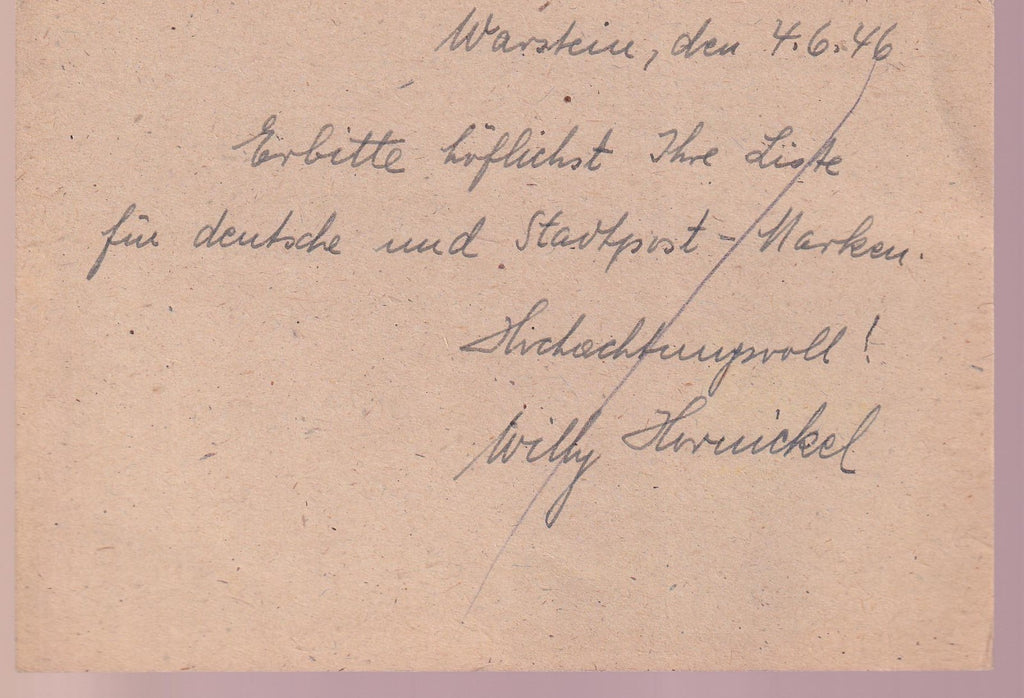 Warstein, den 4.6.46
Erbitte höflichst Ihre Liste
für deutsche und Stadtpost-Marken.
Hochachtungsvoll!
Willy Hornickel